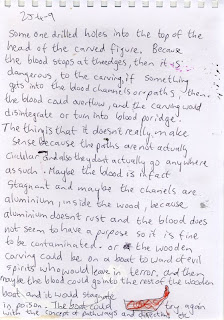 25-4-9
Some one drilled holes into the top of the
head of the carved figure. Because
the blood stops at the edges, then it is
dangerous, to the carving, if something
gets into the blood channels or paths, then,
the blood could overflow, and the carving would
disintegrate or turn into blood porridge.
The thing is that it doesn't really make
sense because the paths are not actually
circular and also they dont actually go anywhere
as such. Maybe the blood is in fact
stagnant and maybe the chanels are
aluminium, inside the wood, because
aluminium doesnt rust and the blood does
not seem to have a purpose so it is fine
to be contaminated - or the wooden
carving could be on a boat to ward of evil
spirits who would leave in terror, and then
maybe the blood could go into the rest of the wooden
boat and it would stagnate
in poison. The boat could try again
with the concept of pathways and